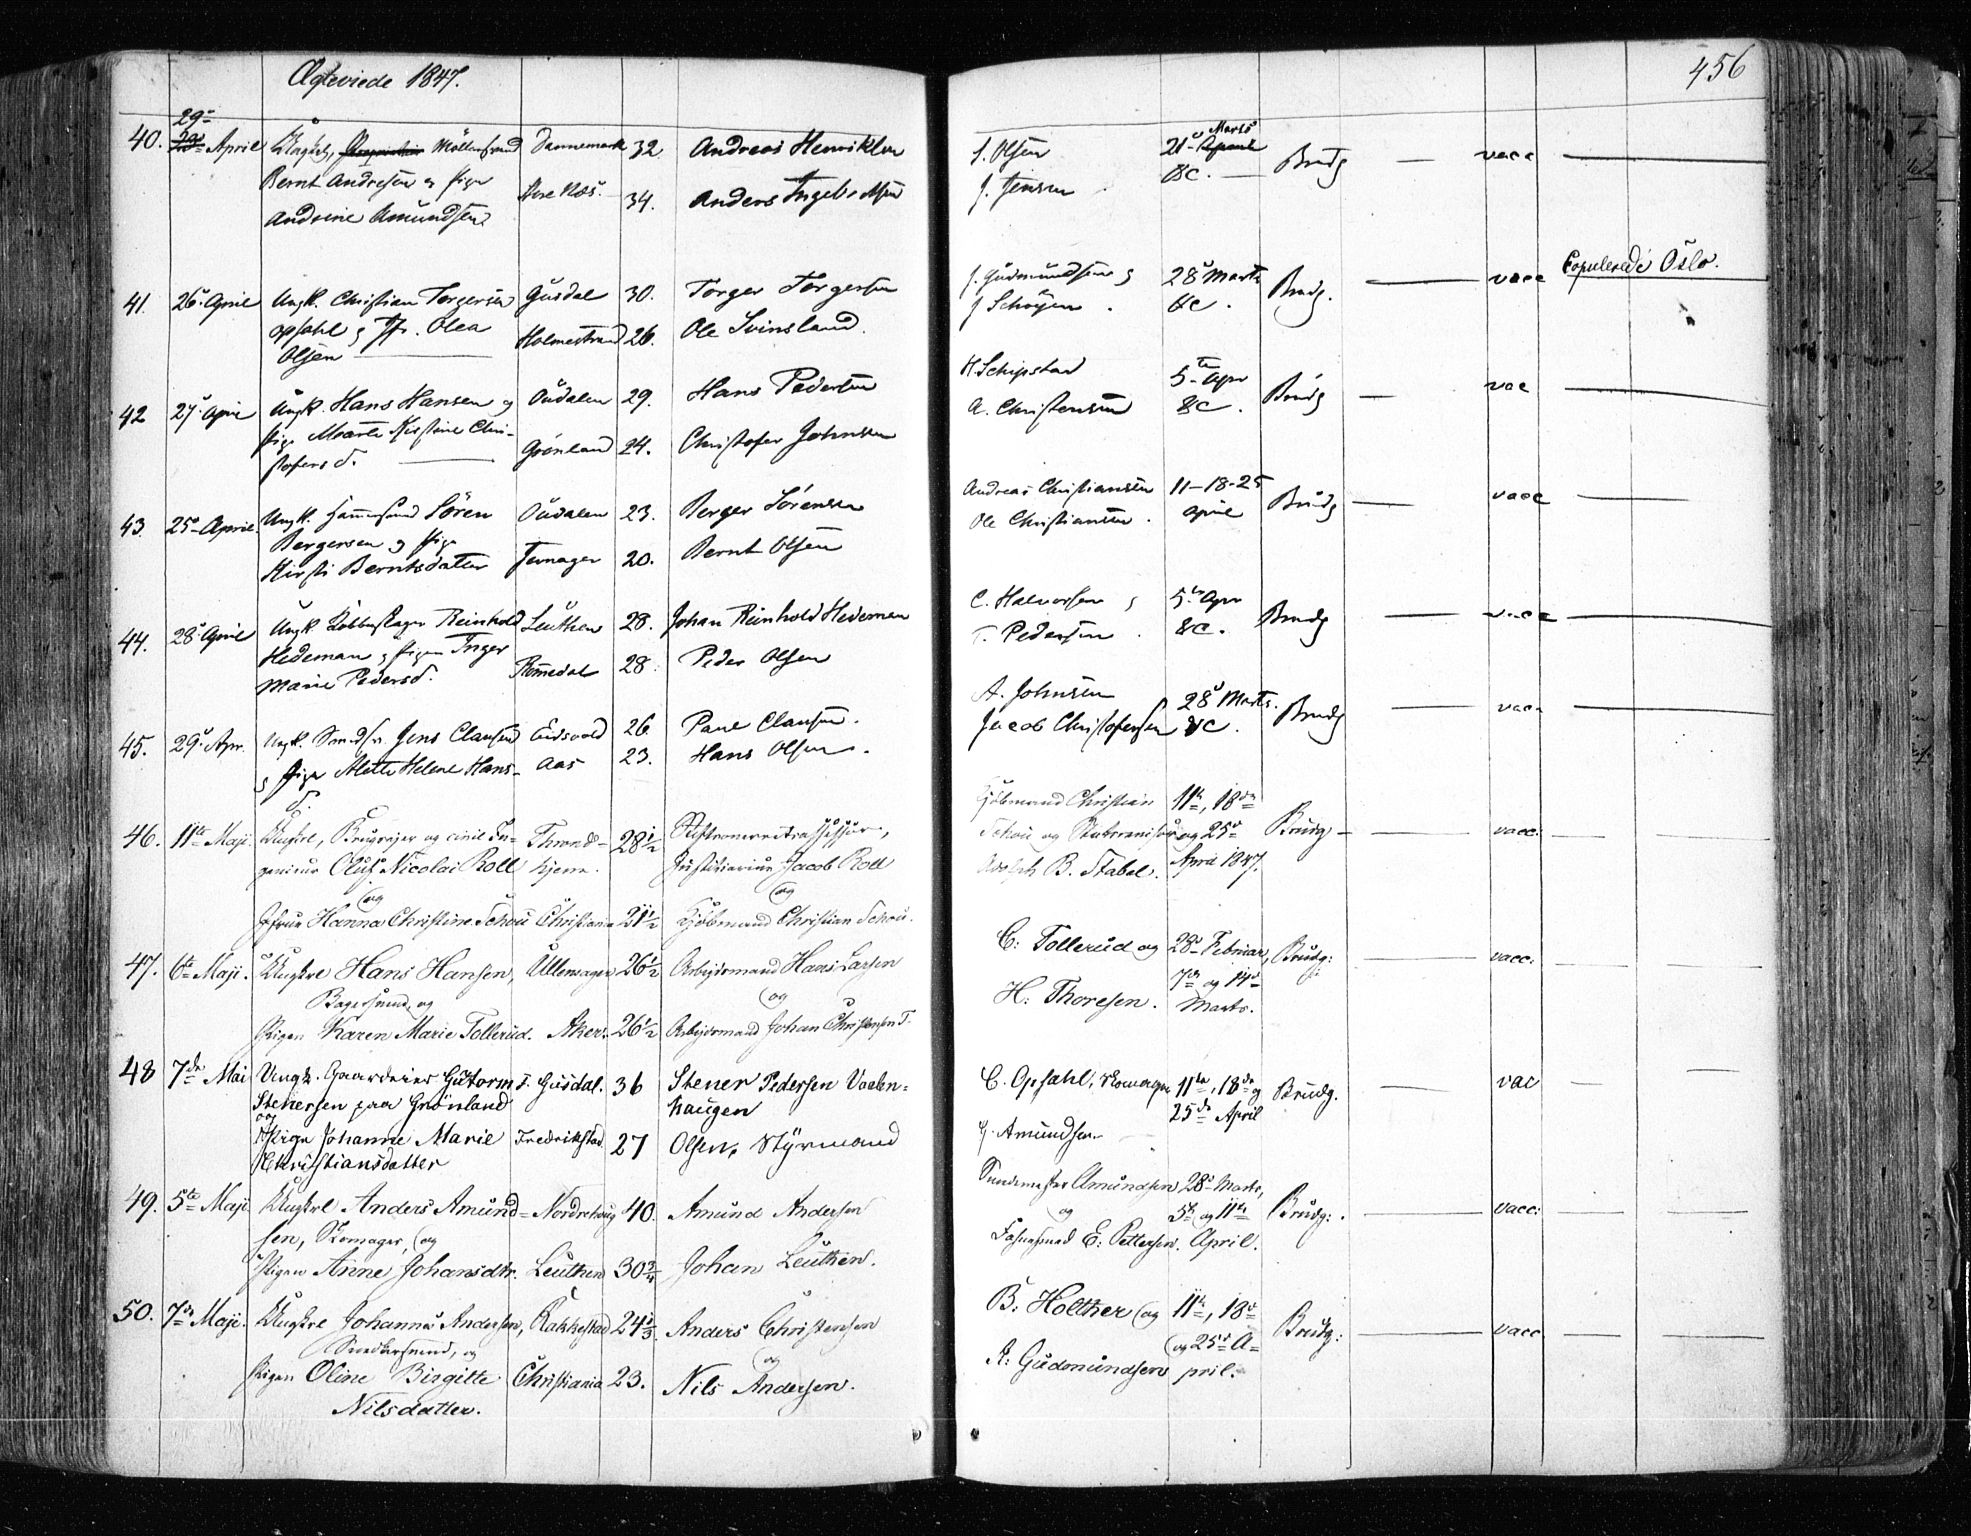 Ægteviede 1847.
456
40. 29de April Ungk, Møllersvend Dannemark 32 Andreas Henriksen J. Olsen 21de Marts Brudg — vacc —
Bernt Andresen og Pige Næs. 34. Anders Ingebretsen J. Jensen &c.
Andrine Amundsen
41. 26de April Ungk. Christian Torgersen Gusdal 30. Torger Torgersen J. Gudmundsen og 28de Marts Brudg. — vacc Copulerede i Oslo.
Opsahl og Jfr. Olea Holmestrand 26. Ole Svinsland. J Schøyen. &c.
Olsen —
42 27de April Ungk. Hans Hansen og Oudalen 29. Hans Pedersen H. Schipstad 5te Apr Brudg — vac —
Pige Marte Kirstine Chri- Grønland 24. Christofer Johnsen A. Christensen &c.
stofersd. —
43. 25de April. Ungk. Søren Oudalen 23. Berger Sørensen Andreas Christiansen 11-18-25 Brudg — vacc —
Bergersen og Pige Ole Christiansen. April
Kirsti Berntsdatter 20. Bernt Olsen
44. 28de April Ungk Kobberslager Reinhold Leuthen 28. Johan Reinhold Hedeman C. Halvorsen og 5te Apr Brudg — vacc —
Hedeman og Pigen Inger Romedal 28. Peder Olsen T. Pedersen. &c.
Marie Pedersd.
45. 29de Apr. Ungk. Jens Clausen Eidsvold 26 Paul Clausen. A. Johnsen 28de Marts. Brudg — vacc —
og Pige Mette Helene Hans- Aas 23. Hans Olsen. Jacob Christofersen &c.
d.
46. 11te Maji. Ungkrl, Brugseier og civil In- Thrond- 28 1/2 Stiftsoverretsassessor, Kjøbmand Christian 11te, 18de Brudg — vacc. —
genieur Oluf Nicolai Roll hjem. Justitiarius Jacob Roll Schou og og 25de
og og Adolph B. Stabel. April 1847.
Jfrue Hanna Christine Schou Christiania 21 1/2 Kjøbmand Christian Schou.
47. 6te Maji. Ungkrl Hans Hansen, Ullensager 26 1/2 Arbejdsmand Hans Larsen C: Tollerud og 28de Februar, Brudg: — vacc: —
Bagersvend og og H: Thoresen. 7de og 14de
Pigen Karen Marie Tollerud. Aker. 26 1/2 Arbejdsmand Johan Christensen T. Marts.
48 7de Mai Ungk. Gaardeier Guttorm Gusdal. 36 Stener Pedersen Vaalen- C. Opsahl, Skomager 11te, 18de og Brudg. — vac —
Stenersen paa Grønland haugen 25de April
og
Pige Johanne Marie Fredrikstad 27 Olsen, Styrmand Amundsen
Christiansdatter
49. 5te Maji Ungkrl Anders Amund- Nordrehoug 40. Amund Andersen Amundsen 28de Marts, Brudg: — vacc: —
sen, Skomager, og og 5te og 11te
Pigen Anne Johansdtr. Leuthen 30 3/4 Johan Leuthen. E: Pettersen. April.
50. 7de Maji. Ungkrl Johannes Andersen, Rakkestad 24 1/3 Anders Christensen B: Holther og 11te, 18de Brudg: — vacc —
Snedkersvend, og og og 25de A-
Pigen Oline Birgitte Christiania 23. Nils Andersen. A: Gudmundsen pril.
Nilsdatter.